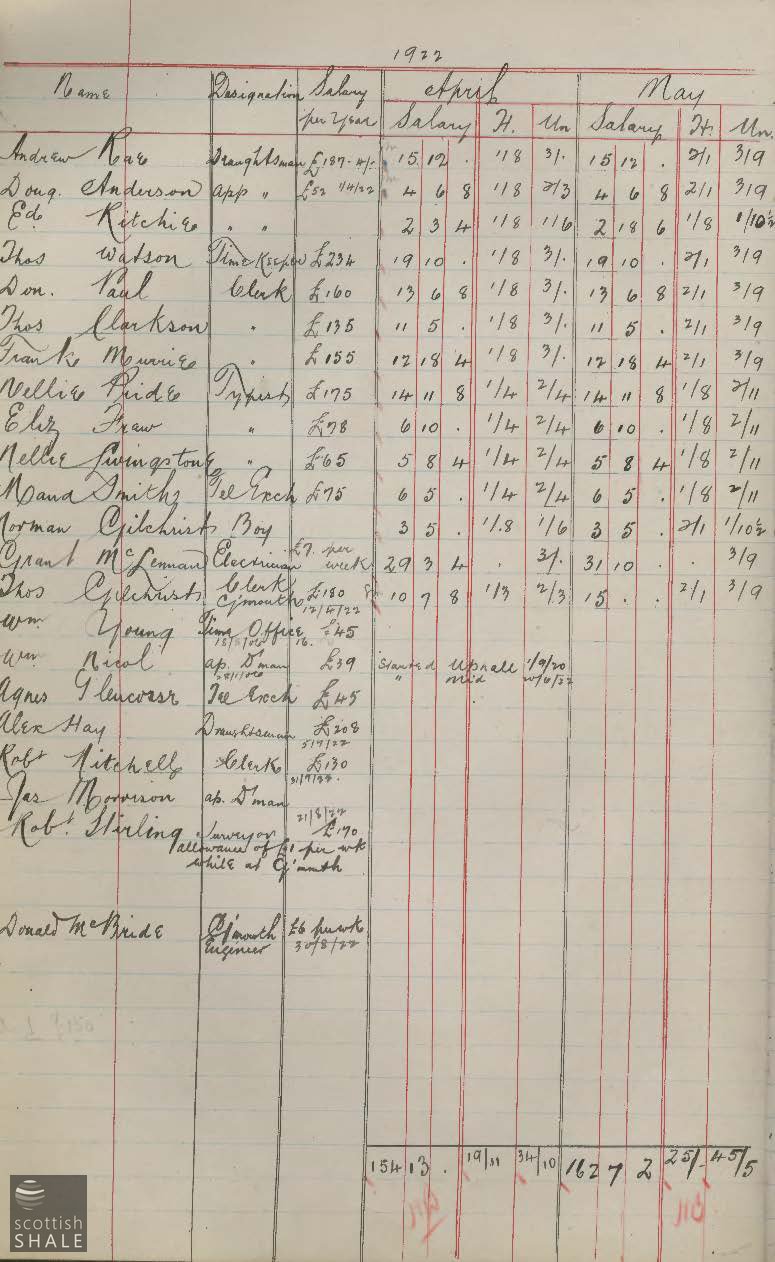 1922
Name Designation Salary per Year April May
Salary H. Un Salary H. Un.
Andrew Rae Draughtsman £187-4/- 15 12 . 1/8 3/- 15 12 . 2/1 3/9
Doug. Anderson app " £52 1/4/22 4 6 8 1/8 2/3 4 6 8 2/1 3/9
Ed. Ritchie " " 2 3 4 1/8 1/6 2 18 6 1/8 1/10½
Thos Watson Time Keeper £234 19 10 . 1/8 3/. 19 10 . 2/1 3/9
Don. Paul Clerk £160 13 6 8 1/8 3/. 13 6 8 2/1 3/9
Thos Clarkson " £135 11 5 . 1/8 3/. 11 5 . 2/1 3/9
Frank Murrie " £155 12 18 4 1/8 3/. 12 18 4 2/1 3/9
Nellie Pride Typist £175 14 11 8 1/4 2/4 14 11 8 1/8 2/11
Eliz Fraw " £78 6 10 . 1/4 2/4 6 10 . 1/8 2/11
Nellie Livingstone " £65 5 8 4 1/4 2/4 5 8 4 1/8 2/11
Smith Tel Exch £75 6 5 . 1/4 2/4 6 5 . 1/8 2/11
Norman Gilchrist Boy 3 5 . 1/.8 1/6 3 5 . 2/1 1/10½
Grant McLennan Electrician £7. per week 29 3 4 . 3/. 31 10 . . 3/9
Thos Gilchrist Clerk G'mouth £180 12/4/22 10 7 8 1/3 2/3 15 . . 2/1 3/9
Wm Young Time Office £45
Wm Nicol ap. D'man £39 Started Uphall 1/9/20
" Mid
Agnes Glencross Tel Exch £45
Alex Hay Draughtsman £208
5/7/22
Robt Mitchell Clerk £130
31/7/22.
Jas Morrison ap. D'man
21/8/22
Robt. Stirling Surveyor £170
allowance of £1 per wk
while at G'mouth
Donald McBride G'mouth £6 per wk
Engineer 30/8/22
£150
154 13 . 19/11 34/10 162 7 2 25/- 45/5
scottish
SHALE